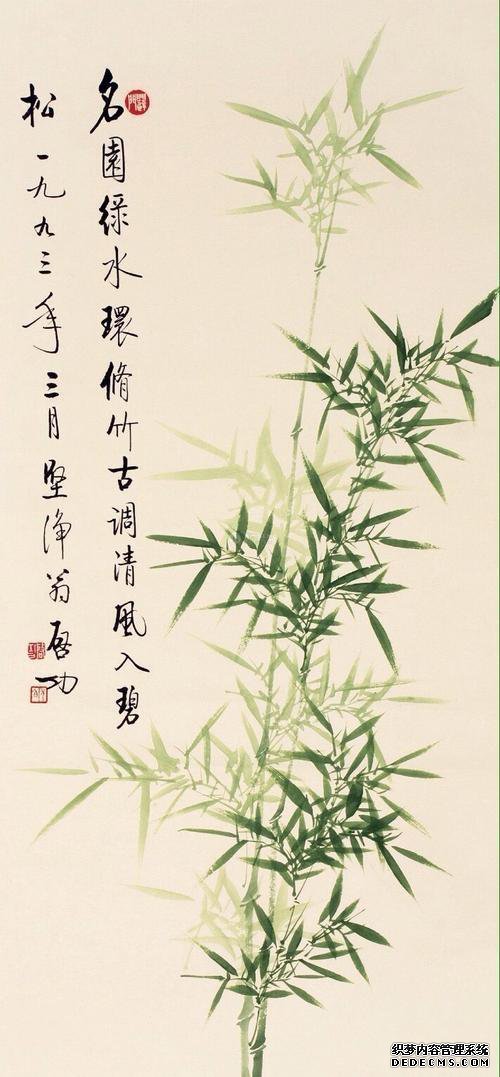 名園緑水環脩竹古调清風入碧
松一九九三年三月堅净翁啓功
织梦内容管理系统
DEDECMS.COM